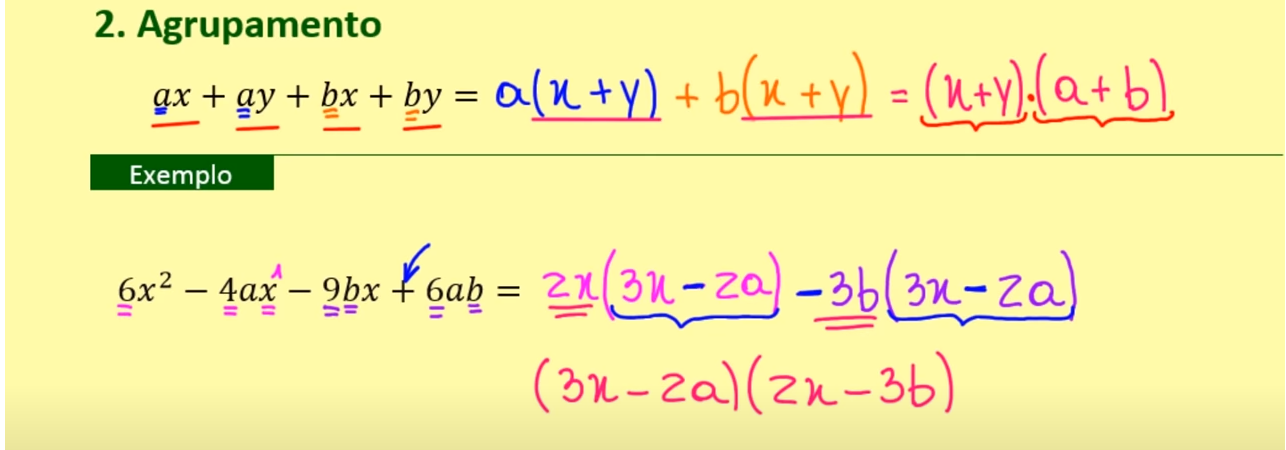 2. Agrupamento
ax + ay + bx + by = a(x+y) + b(x+y) = (x+y).(a+b)
Exemplo
6x² – 4ax¹ – 9bx + 6ab = 2x(3x-2a) -3b(3x-2a)
(3x-2a)(2x-3b)